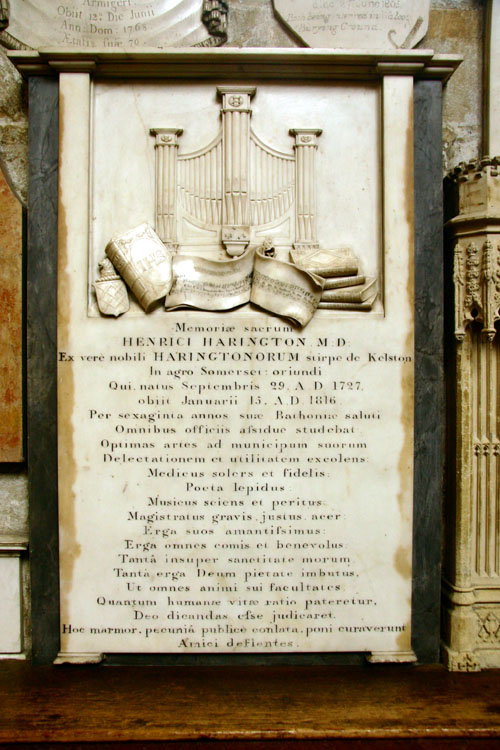 Armigeri
Obiit 12: Die Junii
Ann: Dom: 1768
Ætatis suæ 70
Memoriæ sacrum
HENRICI HARINGTON, M.D.
Ex verè nobili HARINGTONORUM stirpe de Kelston
In agro Somerset: oriundi
Qui, natus Septembris 29. A.D 1727.
obiit Januarii 15. A.D. 1816.
Per sexaginta annos suæ Bathoniæ saluti
Omnibus officiis afsidue studebat.
Optimas artes ad municipum suorum
Delectationem et utilitatem excolens:
Medicus solers et fidelis:
Poeta lepidus:
Musicus sciens et peritus:
Magistratus gravis, justus, acer:
Erga suos amantifsimus:
Erga omnes comis et benevolus:
Tantâ insuper sanctitate morum,
Tantâ erga Deum pietate imbutus,
Ut omnes animi sui facultates,
Quantum humanæ vitæ ratio pateretur,
Deo dicandas efse judicaret.
Hoc marmor, pecuniâ publice conlata, poni curaverunt
Amici deflentes.